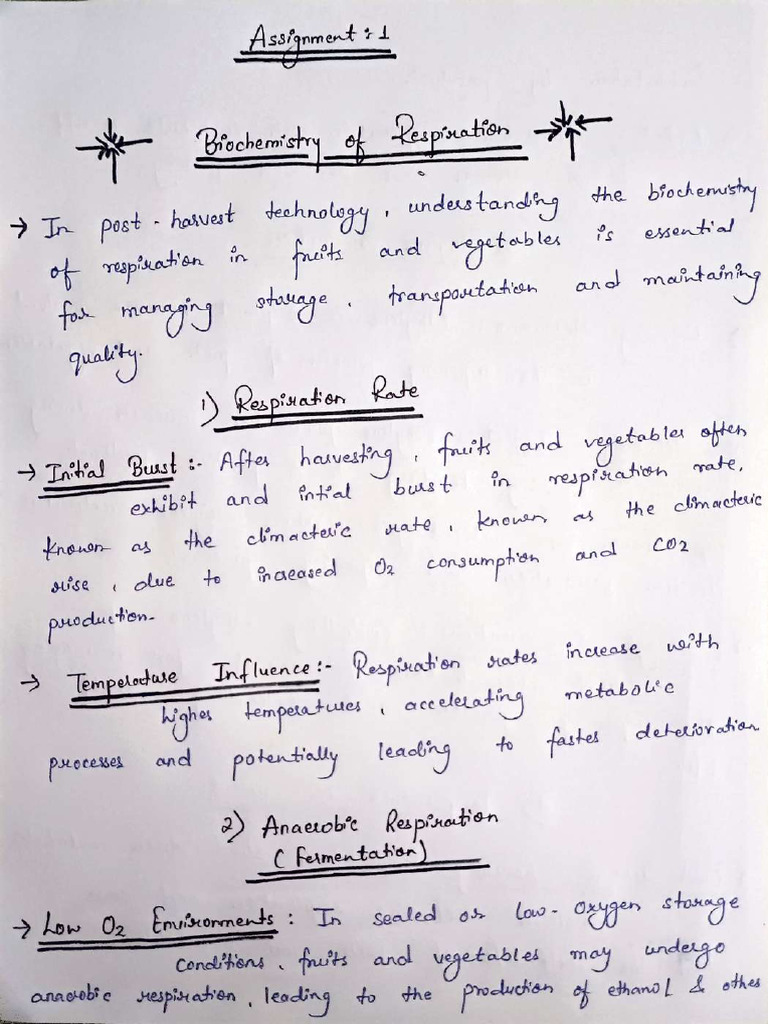 Assignment : 1
Biochemistry of Respiration
→ In post-harvest technology, understanding the biochemistry
of respiration in fruits and vegetables is essential
for managing storage, transportation and maintaining
quality.
1) Respiration Rate
→ Initial Burst :- After harvesting, fruits and vegetables often
exhibit and intial burst in respiration rate,
known as the climacteric rate, known as the climacteric
rise, due to increased O2 consumption and CO2
production.
→ Temperature Influence :- Respiration rates increase with
higher temperatures, accelerating metabolic
processes and potentially leading to faster deterioration
2) Anaerobic Respiration
(Fermentation)
→ Low O2 Environments : In sealed or low-oxygen storage
conditions, fruits and vegetables may undergo
anaerobic respiration, leading to the production of ethanol & other